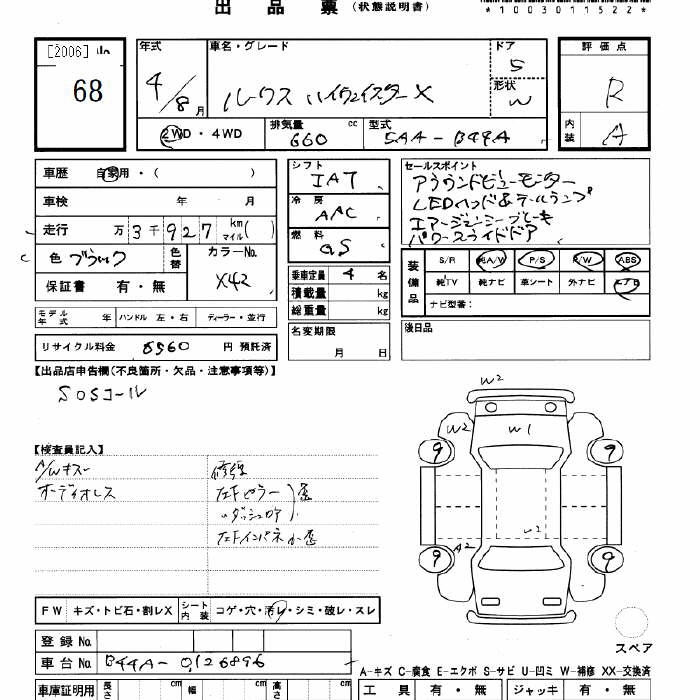 出 品 票 (状態説明書)
*1003011522*
[2006] 山
68
年式
4/8月
車名・グレード
ルークス ハイウェイスターX
ドア
5
形状
W
評価点
R
内装
A
2WD・4WD
排気量 660 cc
型式 5AA-B44A
車歴 自家用・( )
車検 年 月
走行 万 3千927 km マイル( )
色 ブラック
色替
カラーNo.
X42
保証書 有・無
シフト
IAT
冷房
AAC
燃料
GS
乗車定員 4 名
積載量 kg
総重量 kg
セールスポイント
アラウンドビューモニター
LEDヘッド&テールランプ
エマージェンシーブレーキ
パワースライドドア
装備品
S/R 純A/W P/S P/W ABS
純TV 純ナビ 革シート 外ナビ エアB
ナビ型番:
モデル年式 年 ハンドル 左・右 ディーラー・並行
名変期限
月 日
後日品
リサイクル料金 8560 円 預託済
【出品店申告欄(不良箇所・欠品・注意事項等)】
SOSコール
【検査員記入】
A/Wキズ
オーディオレス
修復
左Fピラー
〃ダッシュロア
歪
左Fインパネ小歪
W2
W2
W1
9
9
W2
A2
9
9
スペア
FW キズ・トビ石・割レX シート内装 コゲ・穴・汚レ・シミ・破レ・スレ
登録No.
車台No. B44A-0126896
A-キズ C-腐食 E-エクボ S-サビ U-凹ミ W-補修 XX-交換済
車庫証明用 長さ cm 幅 cm 高さ cm
工具 有・無 ジャッキ 有・無